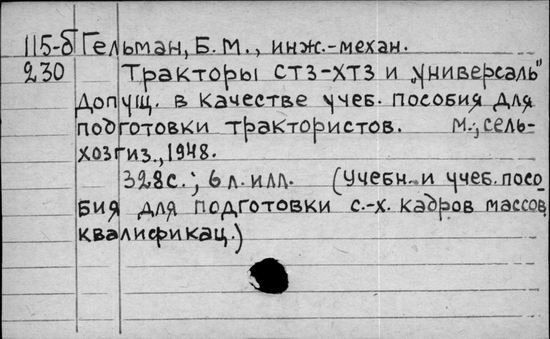 115-б Гельман, Б. М., инж.-механ.
230 Тракторы СТЗ-ХТЗ и „Универсаль"
Допущ. в качестве учеб. пособия для
подготовки трактористов. М., Сель-
хозгиз., 1948.
328 с.; 6 л. илл. (Учебн. и учеб. посо-
бия для подготовки с.-х. кадров массов.
квалификац.)